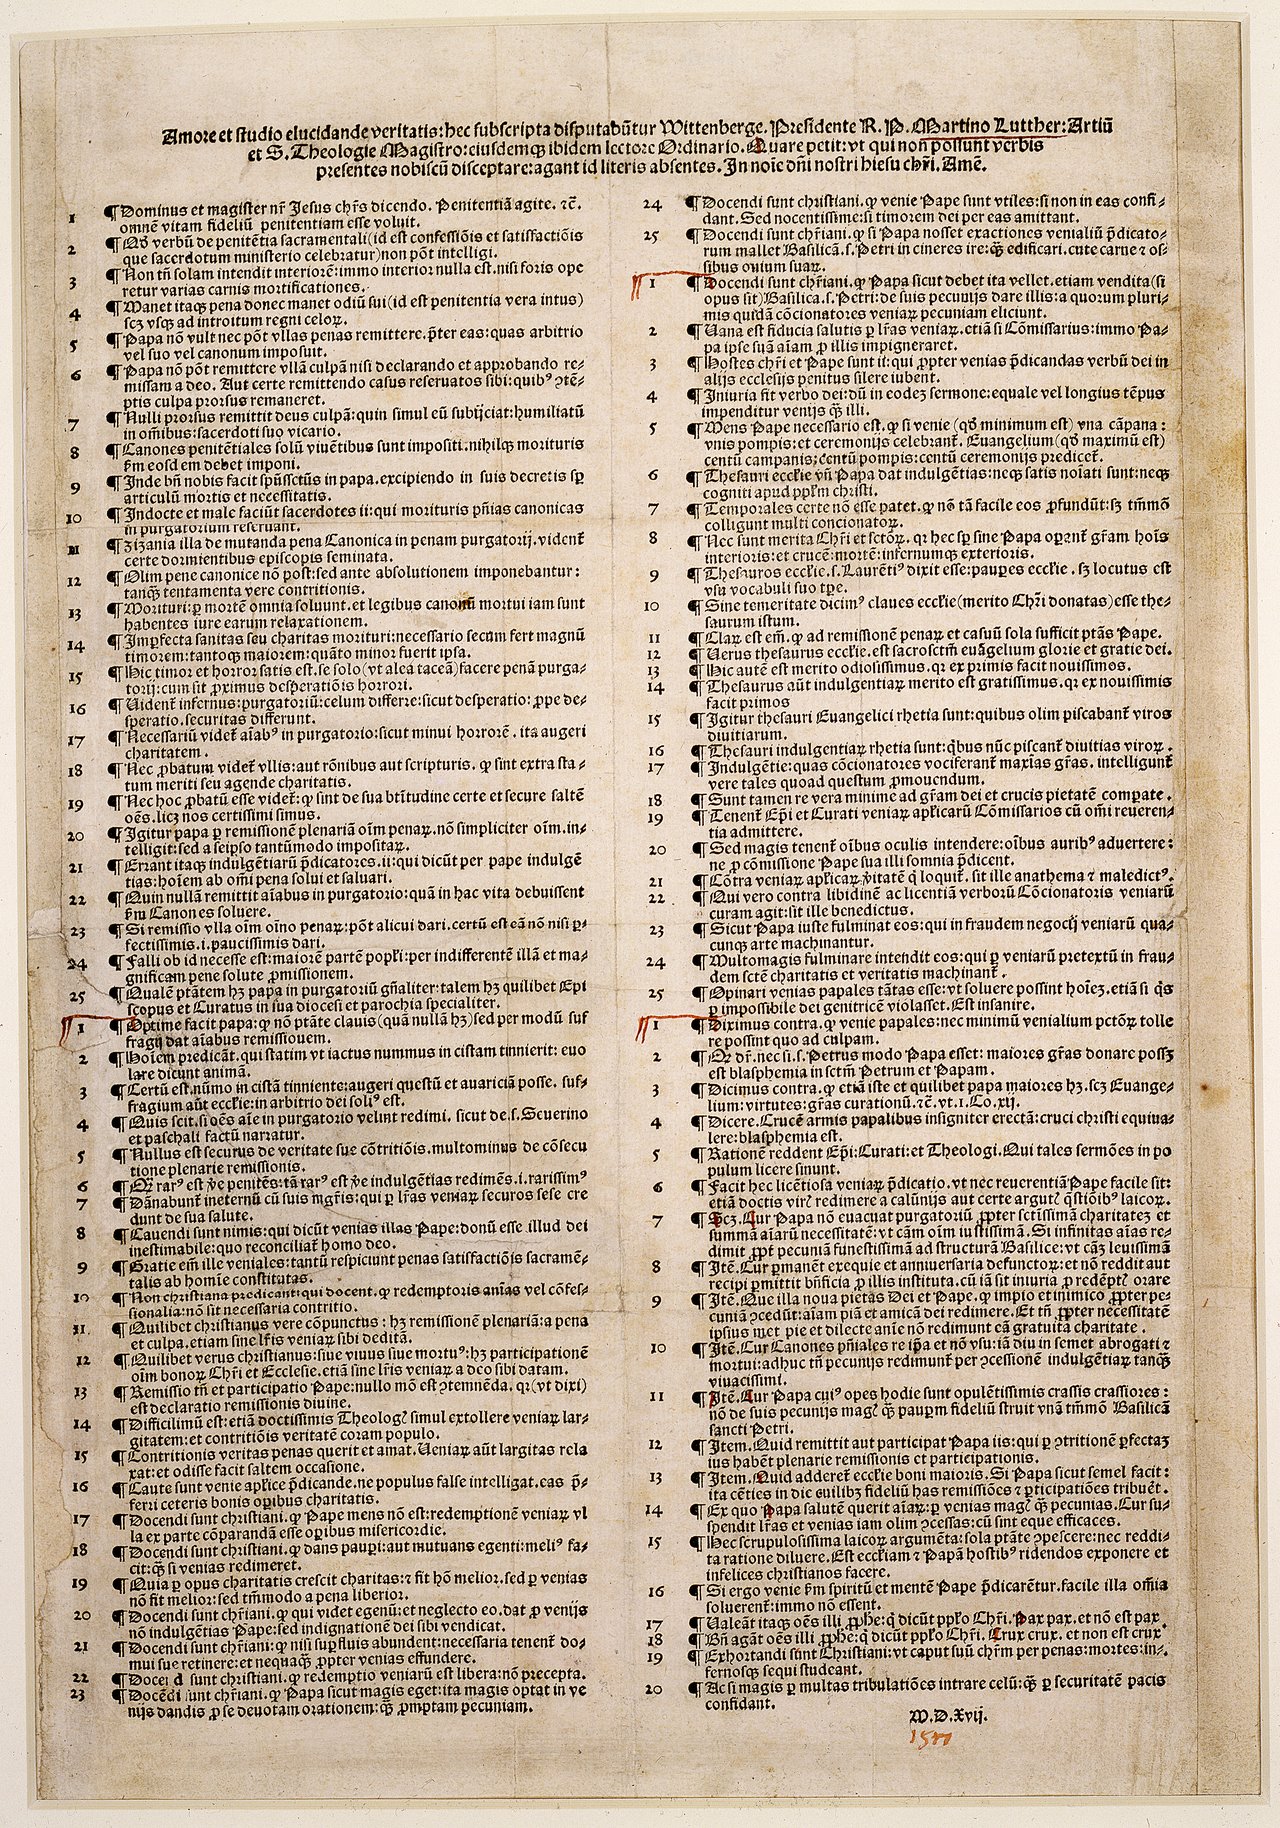 Amore et studio elucidande veritatis: hec subscripta disputabũtur Wittenberge. Presidente R. P. Martino Lutther: Artiũ
et S. Theologie Magistro: eiusdemq̃ ibidem lectore Ordinario. Quare petit: vt qui non possunt verbis
presentes nobiscũ disceptare: agant id literis absentes. In noĩe dñi nostri hiesu chr̃i. Amẽ.
1 ¶ Dominus et magister nr̃ Jesus chr̃s dicendo. Penitentiã agite. ⁊c̃.
omnẽ vitam fideliũ penitentiam esse voluit.
2 ¶ Qd̃ verbũ de penitẽtia sacramentali (id est confessiõis et satisfactiõis
que sacerdotum ministerio celebratur) non põt intelligi.
3 ¶ Non tñ solam intendit interiorẽ: immo interior nulla est. nisi foris ope
retur varias carnis mortificationes.
4 ¶ Manet itaqꝫ pena donec manet odiũ sui (id est penitentia vera intus)
scꝫ vsqꝫ ad introitum regni celoꝝ.
5 ¶ Papa nõ vult nec põt vllas penas remittere. p̃ter eas: quas arbitrio
vel suo vel canonum imposuit.
6 ¶ Papa nõ põt remittere vllã culpã nisi declarando et approbando re-
missam a deo. Aut certe remittendo casus reseruatos sibi: quibꝰ ↄtẽ-
ptis culpa prorsus remaneret.
7 ¶ Nulli prorsus remittit deus culpã: quin simul eũ subijciat: humiliatũ
in om̃ibus: sacerdoti suo vicario.
8 ¶ Canones penitẽtiales solũ viuẽtibus sunt impositi. nihilqꝫ morituris
ẽm eosd em debet imponi.
9 ¶ Inde bñ nobis facit spũssctũs in papa. excipiendo in suis decretis sp̱
articulũ mortis et necessitatis.
10 ¶ Indocte et male faciũt sacerdotes ii: qui morituris pñias canonicas
in purgatorium reseruant.
11 ¶ Zizania illa de mutanda pena Canonica in penam purgatorij. vident̃
certe dormientibus episcopis seminata.
12 ¶ Olim pene canonice nõ post: sed ante absolutionem imponebantur:
tanqꝫ tentamenta vere contritionis.
13 ¶ Morituri: ꝑ mortẽ omnia soluunt. et legibus canonũ mortui iam sunt
habentes iure earum relaxationem.
14 ¶ Imꝑfecta sanitas seu charitas morituri: necessario secum fert magnũ
timorem: tantoqꝫ maiorem: quãto minor fuerit ipsa.
15 ¶ Hic timor et horror satis est. se solo (vt alea taceã) facere penã purga-
torij: cum sit ꝓximus desperatiõis horrori.
16 ¶ Vident̃ infernus: purgatoriũ: celum differre: sicut desperatio: ꝓpe de-
speratio. securitas differunt.
17 ¶ Necessariũ videt̃ aĩabꝰ in purgatorio: sicut minui horrorẽ. ita augeri
charitatem.
18 ¶ Nec ꝓbatum videt̃ vllis: aut rõnibus aut scripturis. ꝙ sint extra sta-
tum meriti seu agende charitatis.
19 ¶ Nec hoc ꝓbatũ esse videt̃: ꝙ sint de sua btĩtudine certe et secure saltẽ
oẽs. licꝫ nos certissimi simus.
20 ¶ Igitur papa ꝑ remissionẽ plenariã oĩm penaꝝ. nõ simpliciter oĩm. in-
telligit: sed a seipso tantũmodo impositaꝝ.
21 ¶ Errant itaqꝫ indulgẽtiarũ p̃dicatores. ii: qui dicũt per pape indulgẽ
tias: hoĩem ab om̃i pena solui et saluari.
22 ¶ Quin nullã remittit aĩabus in purgatorio: quã in hac vita debuissent
ẽm Canones soluere.
23 ¶ Si remissio vlla oĩm oĩno penaꝝ: põt alicui dari. certũ est eã nõ nisi ꝑ-
fectissimis. i. paucissimis dari.
24 ¶ Falli ob id necesse est: maiorẽ partẽ popl̃i: per indifferentẽ illã et ma-
gnificam pene solute ꝓmissionem.
25 ¶ Qualẽ ptãtem hꝫ papa in purgatoriũ gñaliter: talem hꝫ quilibet Epi
scopus et Curatus in sua diocesi et parochia specialiter.
1 ¶ Optime facit papa: ꝙ nõ ptãte clauis (quã nullã hꝫ) sed per modũ suf
fragij dat aĩabus remissionem.
2 ¶ Hoĩem predicãt. qui statim vt iactus nummus in cistam tinnierit: euo
lare dicunt animã.
3 ¶ Certũ est. nũmo in cistã tinniente: augeri questũ et auariciã posse. suf-
fragium aũt eccl̃ie: in arbitrio dei soliꝰ est.
4 ¶ Quis scit. si oẽs aĩe in purgatorio velint redimi. sicut de. s. Seuerino
et paschali factũ narratur.
5 ¶ Nullus est securus de veritate sue cõtritiõis. multominus de cõsecu
tione plenarie remissionis.
6 ¶ Qr̃ rarꝰ est ṽe penitẽs: tã rarꝰ est ṽe indulgẽtias redimẽs. i. rarissimꝰ
7 ¶ Dãnabunt̃ ineternũ cũ suis mgr̃is: qui ꝑ lr̃as veniaꝝ securos sese cre
dunt de sua salute.
8 ¶ Cauendi sunt nimis: qui dicũt venias illas Pape: donũ esse illud dei
inestimabile: quo reconciliat̃ homo deo.
9 ¶ Gratie em̃ ille veniales: tantũ respiciunt penas satisfactiõis sacramẽ-
talis ab homĩe constitutas.
10 ¶ Non christiana predicant: qui docent. ꝙ redemptoris anĩas vel cõfes-
sionalia: nõ sit necessaria contritio.
11 ¶ Quilibet christianus vere cõpunctus: hꝫ remissionẽ plenariã: a pena
et culpa. etiam sine lr̃is veniaꝝ sibi deditã.
12 ¶ Quilibet verus christianus: siue viuus siue mortuꝰ: hꝫ participationẽ
oĩm bonoꝝ Chr̃i et Ecclesie. etiã sine lr̃is veniaꝝ a deo sibi datam.
13 ¶ Remissio tñ et participatio Pape: nullo mõ est ↄtemnẽda. qꝛ (vt dixi)
est declaratio remissionis diuine.
14 ¶ Difficilimũ est: etiã doctissimis Theologꝭ simul extollere veniaꝝ lar-
gitatem: et contritiõis veritatẽ coram populo.
15 ¶ Contritionis veritas penas querit et amat. Veniaꝝ aũt largitas rela
xat: et odisse facit saltem occasione.
16 ¶ Caute sunt venie apl̃ice p̃dicande. ne populus false intelligat. eas p̃-
ferri ceteris bonis oꝑibus charitatis.
17 ¶ Docendi sunt christiani. ꝙ Pape mens nõ est: redemptionẽ veniaꝝ vl
la ex parte cõparandã esse oꝑibus misericordie.
18 ¶ Docendi sunt christiani. ꝙ dans pauꝑi: aut mutuans egenti: meliꝰ fa-
cit: qꝫ si venias redimeret.
19 ¶ Quia ꝑ opus charitatis crescit charitas: ⁊ fit hõ melior. sed ꝑ venias
nõ fit melior: sed tm̃modo a pena liberior.
20 ¶ Docendi sunt christiani. ꝙ qui videt egenũ: et neglecto eo. dat ꝓ venijs
nõ indulgẽtias Pape: sed indignationẽ dei sibi vendicat.
21 ¶ Docendi sunt chr̃iani: ꝙ nisi suꝑfluis abundent: necessaria tenent̃ do-
mui sue retinere: et nequaqꝫ ꝓpter venias effundere.
22 ¶ Docẽd sunt christiani. ꝙ redemptio veniarũ est libera: nõ precepta.
23 ¶ Docẽdi sunt chr̃iani. ꝙ Papa sicut magis eget: ita magis optat in ve
nijs dandis ꝓ se deuotam orationem: qꝫ ꝓmptam pecuniam.
24 ¶ Docendi sunt christiani. ꝙ venie Pape sunt vtiles: si non in eas confi-
dant. Sed nocentissime: si timorem dei per eas amittant.
25 ¶ Docendi sunt chr̃iani. ꝙ si Papa nosset exactiones venialiũ p̃dicato-
rum mallet Basilicã. s. Petri in cineres ire: qꝫ edificari. cute carne ⁊ os-
sibus ouium suaꝝ.
1 ¶ Docendi sunt chr̃iani. ꝙ Papa sicut debet ita vellet. etiam vendita (si
opus sit) Basilica. s. Petri: de suis pecunijs dare illis: a quorum pluri-
mis quidã cõcionatores veniaꝝ pecuniam eliciunt.
2 ¶ Vana est fiducia salutis ꝑ lr̃as veniaꝝ. etiã si Cõmissarius: immo Pa-
pa ipse suã aĩam ꝓ illis impigneraret.
3 ¶ Hostes chr̃i et Pape sunt ii: qui ꝓpter venias p̃dicandas verbũ dei in
alijs ecclesijs penitus silere iubent.
4 ¶ Iniuria fit verbo dei: dũ in eodeꝫ sermone: equale vel longius tẽpus
impenditur venijs qꝫ illi.
5 ¶ Mens Pape necessario est. ꝙ si venie (qd̃ minimum est) vna cãpana:
vnis pompis: et ceremonijs celebrant̃. Euangelium (qd̃ maximũ est)
centũ campanis: centũ pompis: centũ ceremonijs predicet̃.
6 ¶ Thesauri eccl̃ie vñ Papa dat indulgẽtias: neqꝫ satis noĩati sunt: neqꝫ
cogniti apud ppl̃m christi.
7 ¶ Temporales certe nõ esse patet. ꝙ nõ tã facile eos ꝓfundũt: sꝫ tm̃mõ
colligunt multi concionatoꝝ.
8 ¶ Nec sunt merita Chr̃i et sctõꝝ. qꝛ hec sp̱ sine Papa oꝑant̃ gr̃am hoĩs
interioris: et crucẽ: mortẽ: infernumqꝫ exterioris.
9 ¶ Thesauros eccl̃ie. s. Laurẽtiꝰ dixit esse: pauꝑes eccl̃ie. sꝫ locutus est
vsu vocabuli suo tp̃e.
10 ¶ Sine temeritate dicimꝰ claues eccl̃ie (merito Chr̃i donatas) esse the-
saurum istum.
11 ¶ Claꝝ est em̃. ꝙ ad remissionẽ penaꝝ et casuũ sola sufficit ptãs Pape.
12 ¶ Verus thesaurus eccl̃ie. est sacrosctm̃ euãgelium glorie et gratie dei.
13 ¶ Hic autẽ est merito odiosissimus. qꝛ ex primis facit nouissimos.
14 ¶ Thesaurus aũt indulgentiaꝝ merito est gratissimus. qꝛ ex nouissimis
facit primos
15 ¶ Igitur thesauri Euangelici rhetia sunt: quibus olim piscabant̃ viros
diuitiarum.
16 ¶ Thesauri indulgentiaꝝ rhetia sunt: qĩbus nũc piscant̃ diuitias viroꝝ.
17 ¶ Indulgẽtie: quas cõcionatores vociferant̃ maxĩas gr̃as. intelligunt̃
vere tales quoad questum ꝓmouendum.
18 ¶ Sunt tamen re vera minime ad gr̃am dei et crucis pietatẽ comꝑate.
19 ¶ Tenent̃ Epĩ et Curati veniaꝝ apl̃icarũ Cõmissarios cũ om̃i reueren-
tia admittere.
20 ¶ Sed magis tenent̃ oĩbus oculis intendere: oĩbus auribꝰ aduertere:
ne ꝓ cõmissione Pape sua illi somnia p̃dicent.
21 ¶ Cõtra veniaꝝ apl̃icaꝝ ṽitatẽ q̃ loquit̃. sit ille anathema ⁊ maledictꝰ.
22 ¶ Qui vero contra libidinẽ ac licentiã verborũ Cõcionatoris veniarũ
curam agit: sit ille benedictus.
23 ¶ Sicut Papa iuste fulminat eos: qui in fraudem negocij veniarũ qua-
cunqꝫ arte machinantur.
24 ¶ Multomagis fulminare intendit eos: qui ꝑ veniarũ pretextũ in frau-
dem sctẽ charitatis et veritatis machinant̃.
25 ¶ Opinari venias papales tãtas esse: vt soluere possint hoĩeꝫ. etiã si q̃s
ꝑ impossibile dei genitricẽ violasset. Est insanire.
1 ¶ Diximus contra. ꝙ venie papales: nec minimũ venialium pctõꝝ tolle
re possint quo ad culpam.
2 ¶ Qꝙ dr̃. nec si. s. Petrus modo Papa esset: maiores gr̃as donare possꝫ
est blasphemia in sctm̃ Petrum et Papam.
3 ¶ Dicimus contra. ꝙ etiã iste et quilibet papa maiores hꝫ. scꝫ Euange-
lium: virtutes: gr̃as curationũ. ⁊c̃. vt. 1. Co. xij.
4 ¶ Dicere. Crucẽ armis papalibus insigniter erectã: cruci christi equiua-
lere: blasphemia est.
5 ¶ Rationẽ reddent Epĩ: Curati: et Theologi. Qui tales sermões in po
pulum licere sinunt.
6 ¶ Facit hec licẽtiosa veniaꝝ p̃dicatio. vt nec reuerentiã Pape facile sit:
etiã doctis virꝭ redimere a calũnijs aut certe argutꝭ q̃stiõibꝰ laicoꝝ.
7 ¶ Scꝫ. Cur Papa nõ euacuat purgatoriũ ꝓpter sctissimã charitateꝫ et
summã aĩarũ necessitatẽ: vt cãm oĩm iustissimã. Si infinitas aĩas re-
dimit ꝓpt̃ pecuniã funestissimã ad structurã Basilice: vt cãꝫ leuissimã
8 ¶ Itẽ. Cur ꝑmanẽt exequie et anniuersaria defunctoꝝ: et nõ reddit aut
recipi ꝑmittit bñficia ꝓ illis instituta. cũ iã sit iniuria ꝓ redẽptꝭ orare
9 ¶ Itẽ. Que illa noua pietas Dei et Pape. ꝙ impio et inimico ꝓpter pe-
cuniã ↄcedũt: aĩam piã et amicã dei redimere. Et tñ ꝓpter necessitatẽ
ipsius met pie et dilecte anĩe nõ redimunt eã gratuita charitate.
10 ¶ Itẽ. Cur Canones pñiales re ip̃a et nõ vsu: iã diu in semet abrogati ⁊
mortui: adhuc tñ pecunijs redimunt̃ per ↄcessionẽ indulgẽtiaꝝ tanqꝫ
viuacissimi.
11 ¶ Itẽ. Cur Papa cuiꝰ opes hodie sunt opulẽtissimis crassis crassiores:
nõ de suis pecunijs magꝭ qꝫ pauꝑm fideliũ struit vnã tm̃mõ Basilicã
sancti Petri.
12 ¶ Item. Quid remittit aut participat Papa iis: qui ꝑ ↄtritionẽ ꝑfectaꝫ
ius habẽt plenarie remissionis et participationis.
13 ¶ Item. Quid adderet̃ eccl̃ie boni maioris. Si Papa sicut semel facit:
ita cẽties in die cuilibꝫ fideliũ has remissiões ⁊ ꝑticipatiões tribuẽt.
14 ¶ Ex quo Papa salutẽ querit aĩaꝝ: ꝑ venias magꝭ qꝫ pecunias. Cur su-
spendit lr̃as et venias iam olim ↄcessas: cũ sint eque efficaces.
15 ¶ Hec scrupulosissima laicoꝝ argumẽta: sola ptãte ↄpescere: nec reddi-
ta ratione diluere. Est eccl̃iam ⁊ Papã hostibꝰ ridendos exponere et
infelices christianos facere.
16 ¶ Si ergo venie ẽm spiritũ et mentẽ Pape p̃dicarẽtur. facile illa om̃ia
soluerent̃: immo nõ essent.
17 ¶ Valeãt itaqꝫ oẽs illi ꝓphe: q̃ dicũt ppl̃o Chr̃i. Pax pax. et nõ est pax.
18 ¶ Bñ agãt oẽs illi ꝓphe: q̃ dicũt ppl̃o Chr̃i. Crux crux. et non est crux
19 ¶ Exhortandi sũnt Christiani: vt caput suũ chr̃m per penas: mortes: in-
fernosqꝫ sequi studeant.
20 ¶ Ac si magis ꝑ multas tribulatiões intrare celũ: qꝫ ꝑ securitatẽ pacis
confidant.
M. D. Xvij.
1517